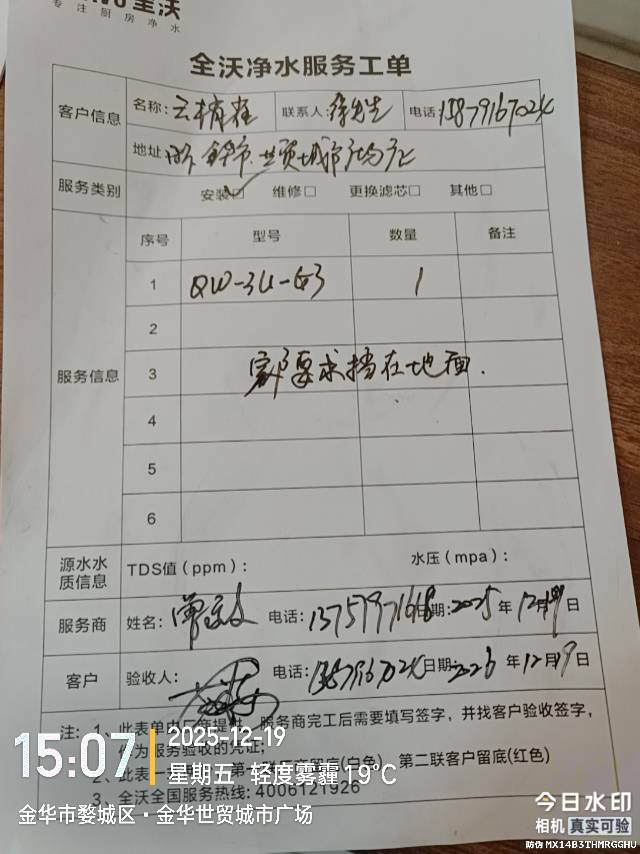 全沃
专注厨房净水
全沃净水服务工单
客户信息 名称: 联系人: 电话:
地址:
服务类别 安装☑ 维修□ 更换滤芯□ 其他□
服务信息 序号 型号 数量 备注
1 QW-3U-G3 1
2
3 客户要求挡在地面.
4
5
6
源水水质信息 TDS值(ppm): 水压(mpa):
服务商 姓名: 电话: 日期:2025年12月19日
客户 验收人: 电话: 日期: 年12月19日
注: 1、此表单由厂商提供,服务商完工后需要填写签字,并找客户验收签字,
作为服务验收的凭证;
2、此表一 (白色),第二联客户留底(红色)
3、全沃全国服务热线: 4006121926
15:07 2025-12-19
星期五 轻度雾霾 19°C
金华市婺城区·金华世贸城市广场
今日水印
相机 真实可验
防伪 MX14B3THMRGGHU